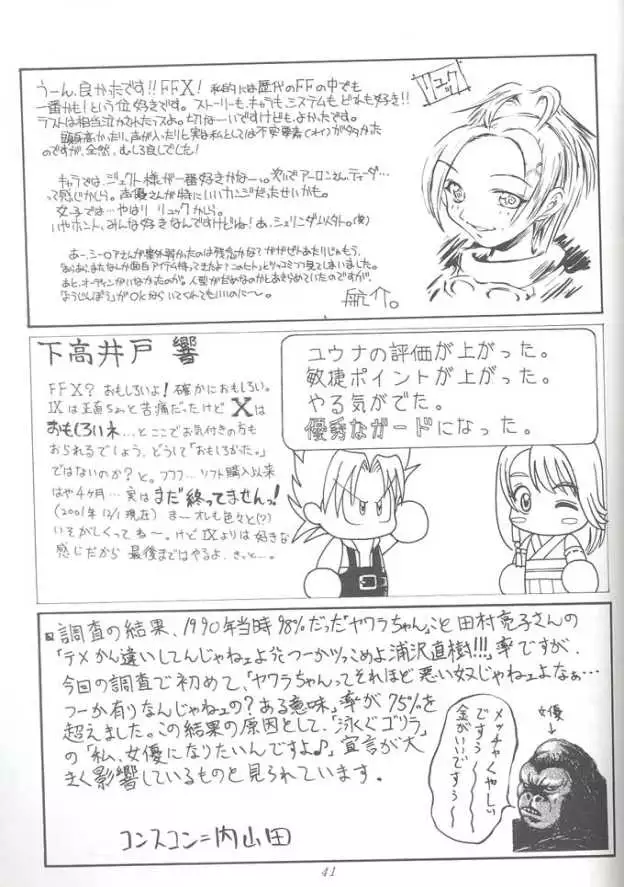 うーん、良かったです!!FFX! 私的には歴代のFFの中でも
一番かも!という位好きです。ストーリーも、キャラも、システムも、どれも好き!!
ラストは相当泣かされたっスよ。切なーいですけども、よかったです。
頭身高かったり、声が入ったりと実は私としては不安要素(?)が多かった
のですが、全然、むしろ良しでした!
キャラでは、ジェクト様が一番好きかなー。次いでアーロンさん、ティーダ…
って感じかしら。声優さんが特にいいカンジだったせいかも。
女子では…やはりリュックかしら。
いやホント、みんな好きなんですけどね!あ、シェリンダム以外。(笑)
あー、シーモアさんが案外弱かったのは残念かな?
リュック
航介。
下高井戸 響
FFX? おもしろいよ!確かにおもしろい。
IXは正直ちょっと苦痛だったけどXは
おもしろいネ…とここでお気付きの方も
おられるでしょう、どうして「おもしろかった。」
ではないのか?と。フフフ…ソフト購入以来
はや4ヶ月…実はまだ終ってませんっ!
(2001年12/1現在) まーオレも色々と(?)
いそがしくってねー。けどIXよりは好きな
感じだから 最後まではやるよ、きっと…。
ユウナの評価が上がった。
敏捷ポイントが上がった。
やる気がでた。
優秀なガードになった。
調査の結果、1990年当時98%だった「ヤワラちゃん」こと田村亮子さんの
「テメかん違いしてんじゃねェよ!つーかツッこめよ浦沢直樹!!!」率ですが、
今回の調査で初めて、「ヤワラちゃんってそれほど悪い奴じゃねェよなぁ…
つーか有りなんじゃねェの?ある意味」率が75%を
超えました。この結果の原因として、「泳ぐゴリラ」
の「私、女優になりたいんですよ♪」宣言が大
きく影響しているものと見られています。
メッチャくやしい
ですぅ〜
金がいいですぅ〜
女優
コンスコン=内山田
41